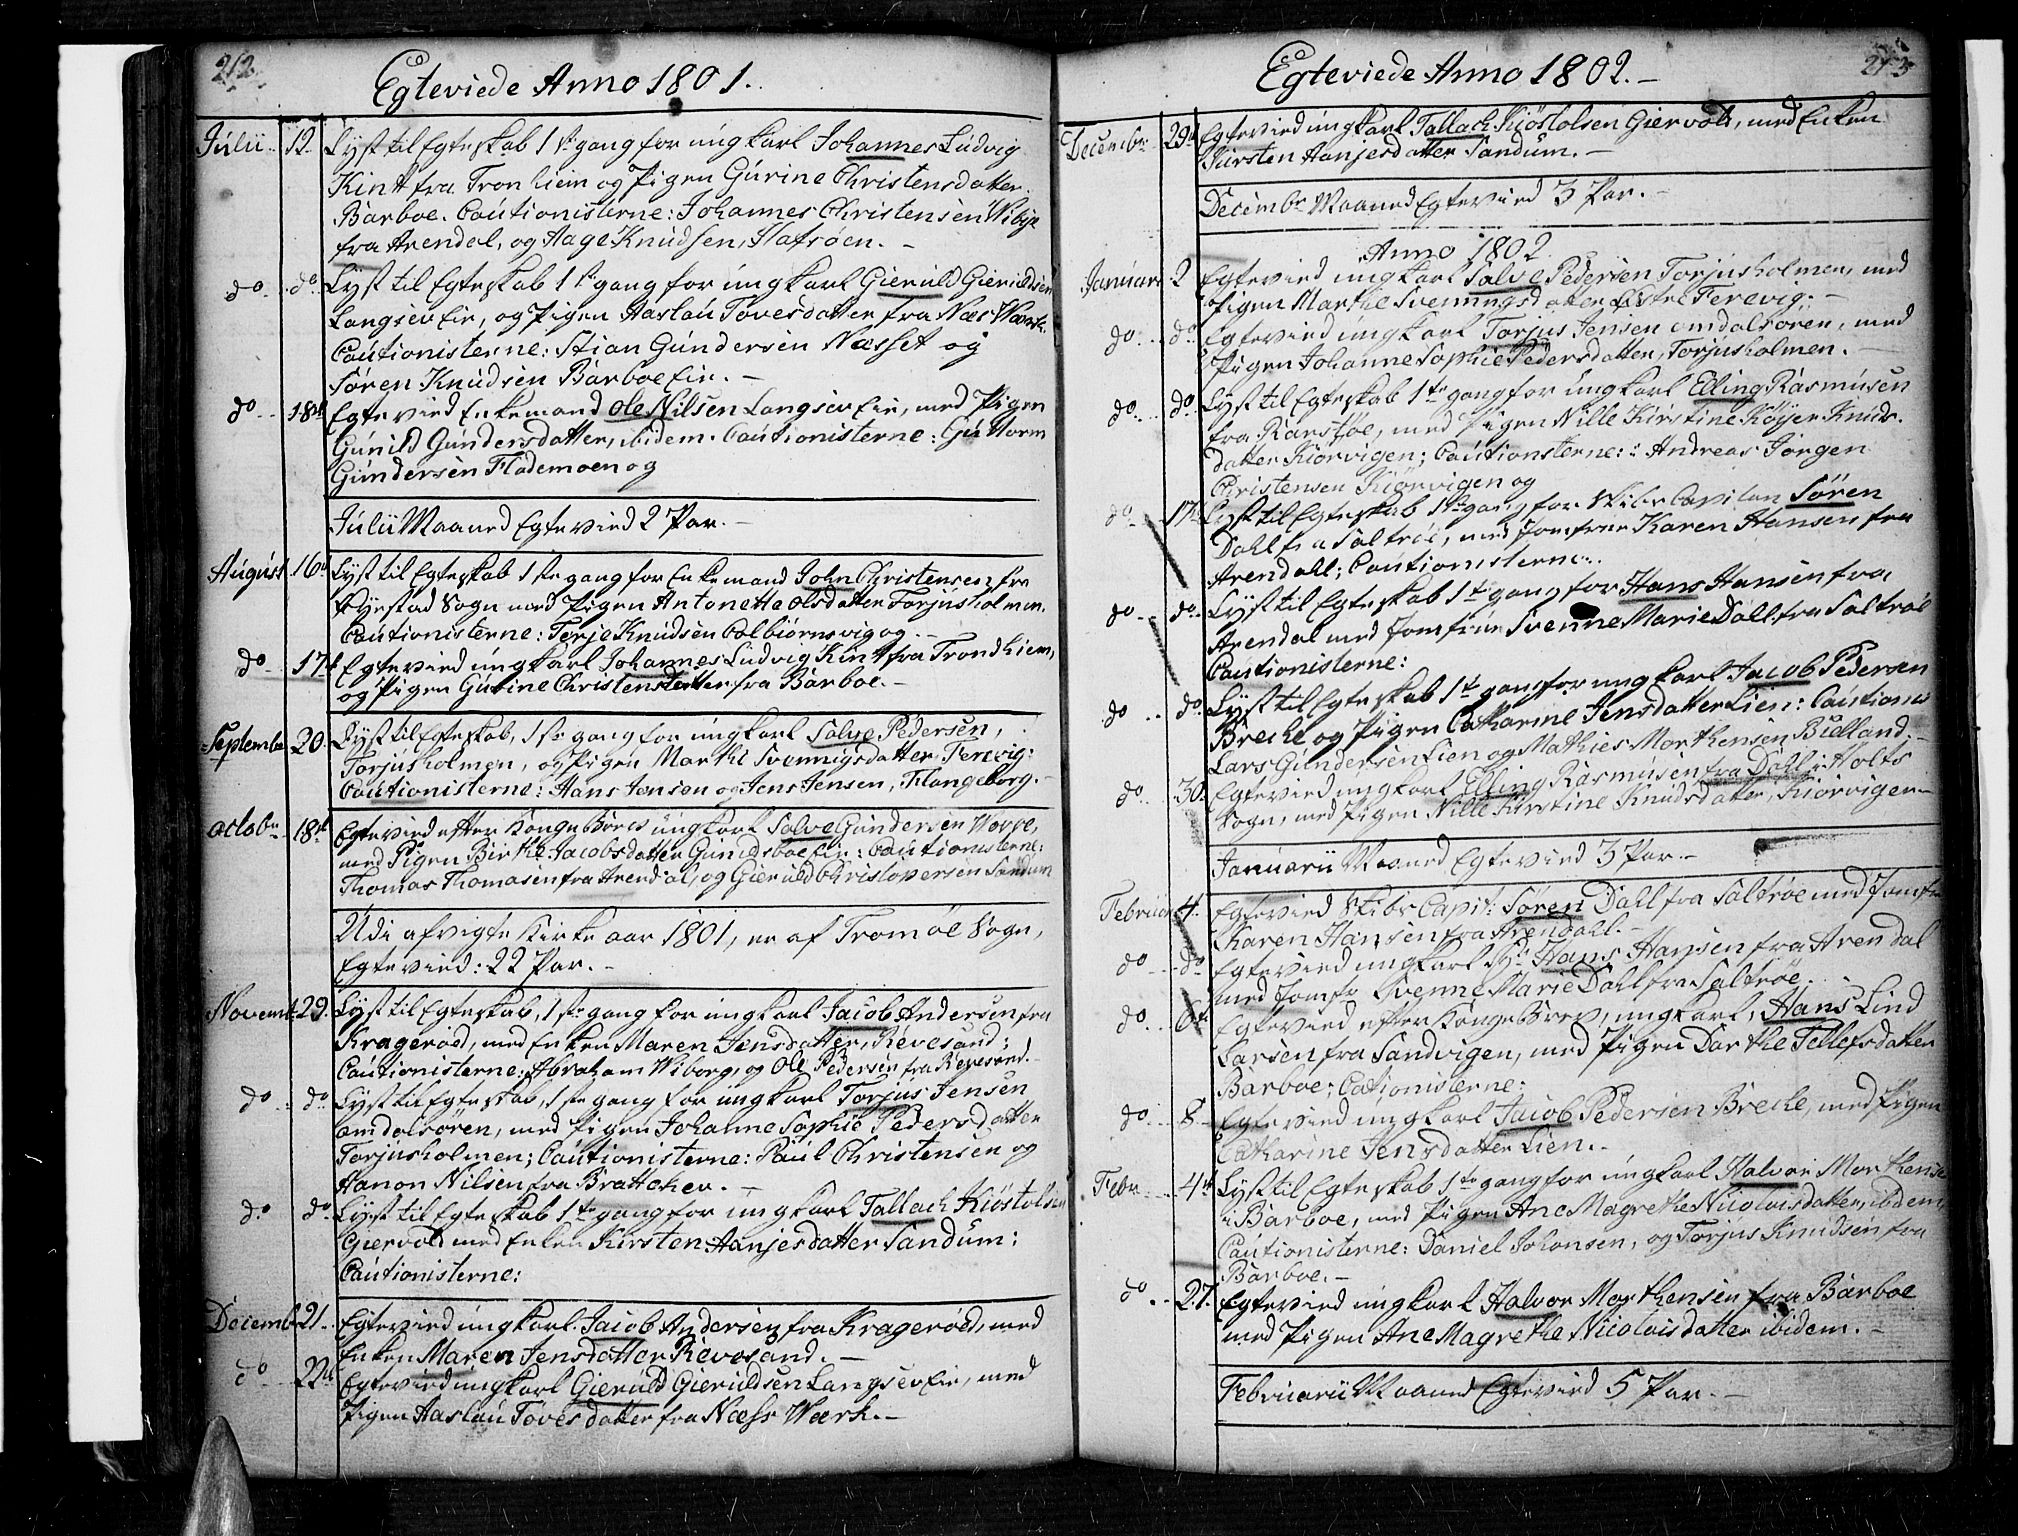 212
Egteviede Anno 1801.
Julii 12 Lyst til Egteskab 1ste gang for ungkarl Johannes Ludvig
Kint fra Tronhiem og Pigen Gurine Christensdatter
Barboe. Cautionisterne: Johannes Christensen Wibye
fra Arendal, og Aage Knudsen, Hafsøen. -
do do Lyst til Egteskab 1ste gang for ungkarl Gieruld Gieruldsen
Langsev Eie, og Pigen Aaslau Tovesdatter fra Næs Wærk.
Cautionisterne: Stian Gundersen Næsset og
Søren Knudsen Barboe Eie. -
do 18de Egtevied Enkemand Ole Nilsen Langsev Eie, med Pigen
Gunild Gundersdatter, ibidem. Cautionisterne: Guttorm
Gundersen Flødemoen og
Julii Maaned Egtevied 2 Par. -
August 16de Lyst til Egteskab 1ste gang for Enkemand John Christensen fra
Øyestad Sogn med Pigen Antonette Olsdatter Torjusholmen.
Cautionisterne: Terje Knudsen Colbiørnsvig og. -
do 17de Egtevied ungkarl Johannes Ludvig Kint fra Trondhiem,
og Pigen Gurine Christensdatter fra Barboe. -
Septembr 20. Lyst til Egteskab, 1ste gang for ungkarl Salve Pedersen,
Torjusholmen, og Pigen Marthe Svennigsdatter Tervig:
Cautionisterne: Hans Jensen og Jens Jensen, Flangeborg. -
Octobr 18de Egtevied efter Konge Brev ungkarl Salve Gundersen Worre,
med Pigen Birthe Jacobsdatter Gunildsboe Eie: Cautionisterne:
Thomas Thomasen fra Arendal, og Gieruld Christopersen Sandum
Udi afvigte Kirke aar 1801, er af Tromøe Sogn,
Egtevied: 22 Par. -
Novembr 29. Lyst til Egteskab, 1ste gang for ungkarl Jacob Andersen fra
Kragerøe, med Enken Maren Jensdatter, Revesand:
Cautionisterne: Abraham Wiborg, og Ole Pedersen fra Revesand. -
do do Lyst til Egteskab, 1ste gang for ungkarl Torjus Jensen
Omdalsøren, med Pigen Johanne Sophie Pedersdatter
Torjusholmen; Cautionisterne: Paul Christensen og
Hanon Nilsen fra Bratteklev. -
do do Lyst til Egteskab 1ste gang for ungkarl Tallach Kiøstolsen
Giervold med Enken Kirsten Aanjesdatter Sandum:
Cautionisterne:
Decemb 21. Egtevied ungkarl Jacob Andersen fra Kragerøe, med
Enken Maren Jensdatter Revesand. -
do 22de Egtevied ungkarl Gieruld Gieruldsen Langsev Eie, med
Pigen Aaslau Tovesdatter fra Næss Wærk. -
213
Egteviede Anno 1802. -
Decembr 29de Egtevied ungkarl Tallach Kiøstolsen Giervold, med Enken
Kirsten Aanjesdatter Sandum. -
Decembr Maaned Egtevied 3 Par. -
Anno 1802
Januarii 2 Egtevied ungkarl Salve Pedersen Torjusholmen, med
Pigen Marthe Svenningsdatter Østre Terevig: -
do do Egtevied ungkarl Torjus Jensen Omdalsøren, med
Pigen Johanne Sophie Pedersdatter, Torjusholmen. -
do do Lyst til Egteskab 1ste gang for ungkarl Elling Rasmusen
fra, med Pigen Nille Kirstine Knuds-
datter Kiørvigen; Cautionsterne: Andreas Jørgen
Christensen Kiørvigen og
do 17de Lyst til Egteskab 1ste gang for Skibs Capitain Søren
Dahl fra Saltrøe, med Jomfrue Karen Hansen fra
Arendahl; Cautionisterne:
do do Lyst til Egteskab 1ste gang for Hans Hansen fra
Arendal med Jomfrue Svenne Marie Dall fra Saltrøe
Cautionisterne:
do do Lyst til Egteskab 1ste gang for ungkarl Jacob Pedersen
Breche og Pigen Catharine Jensdatter Lien: Cautionis
Lars Gundersen Lien og Mathies Morthensen Bielland. -
do 30. Egtevied ungkarl Elling Rasmusen fra Dahl i Holts
Sogn, med Pigen Nille Kirstine Knudsdatter, Kiørvigen -
Januarii Maaned Egtevied 3 Par. -
Februar 4. Egtevied Skibs Capit: Søren Dahl fra Saltrøe med Jomfr
Karen Hansen fra Arendahl. -
do do Egtevied ungkarl Hans Hansen fra Arendal
med Jomfr Svenne Marie Dahl fra Saltrøe.
do 6te Egtevied efter Konge Brev, ungkarl, Hans Lind
Larsen fra Sandvigen, med Pigen Dorthe Tellefsdatter
Barboe; Cationisterne:
do 8 Egtevied ungkarl Jacob Pedersen Breche, med Pigen
Catharine Jensdatter Lien. -
Febr 4de Lyst til Egteskab 1ste gang for ungkarl Halvor Morthense
i Barboe, med Pigen Ane Magrethe Nicolaisdatter, ibidem,
Cautionisterne: Daniel Johansen, og Torjus Knudsen fra
Barboe. -
do 27. Egtevied ungkarl Halvor Morthensen fra Barboe
med Pigen Ane Magrethe Nicolaisdatter ibidem. -
Februarii Maaned Egtevied 5 Par. -